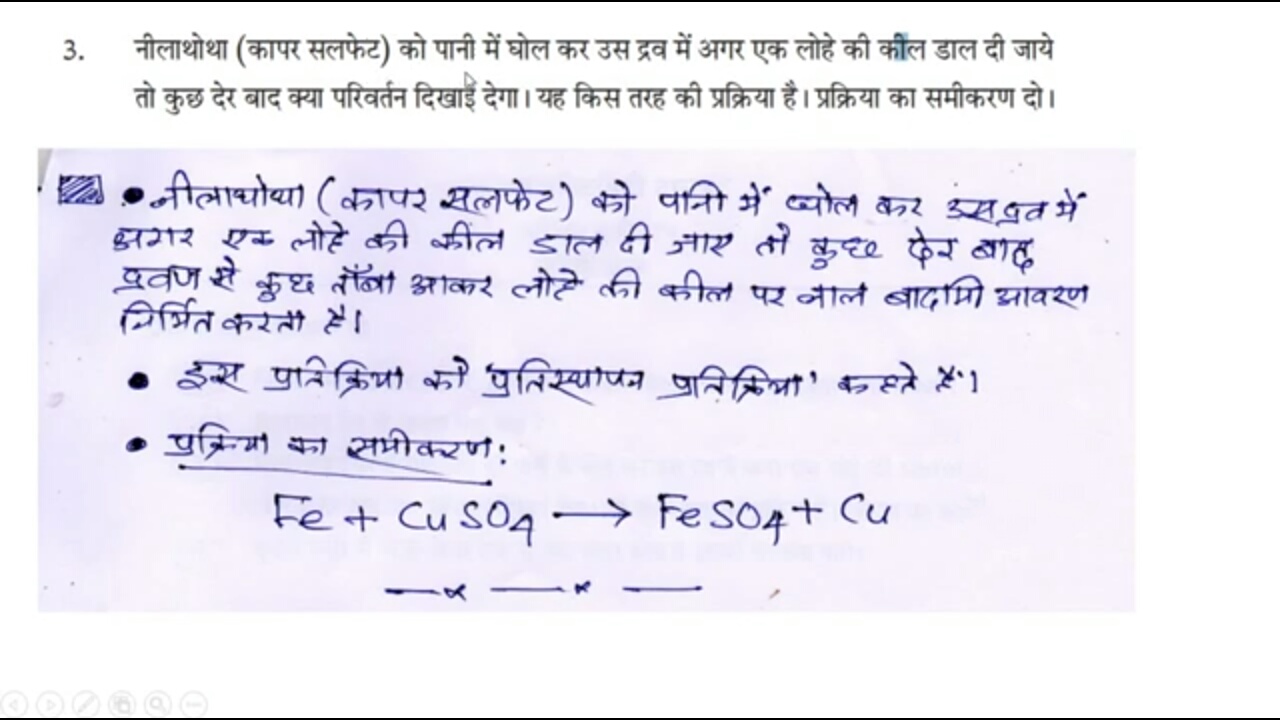 3. नीलाथोथा (कापर सलफेट) को पानी में घोल कर उस द्रव में अगर एक लोहे की कील डाल दी जाये
तो कुछ देर बाद क्या परिवर्तन दिखाई देगा। यह किस तरह की प्रक्रिया है। प्रक्रिया का समीकरण दो।
• नीलाथोथा (कापर सलफेट) को पानी में घोल कर उस द्रव में
अगर एक लोहे की कील डाल दी जाए तो कुछ देर बाद
द्रवण से कुछ ताँबा आकर लोहे की कील पर लाल बादामि आवरण
निर्मित करता है।
• इस प्रतिक्रिया को 'प्रतिस्थापन प्रतिक्रिया' कहते हैं।
• प्रक्रिया का समीकरण:
Fe + CuSO4 → FeSO4 + Cu